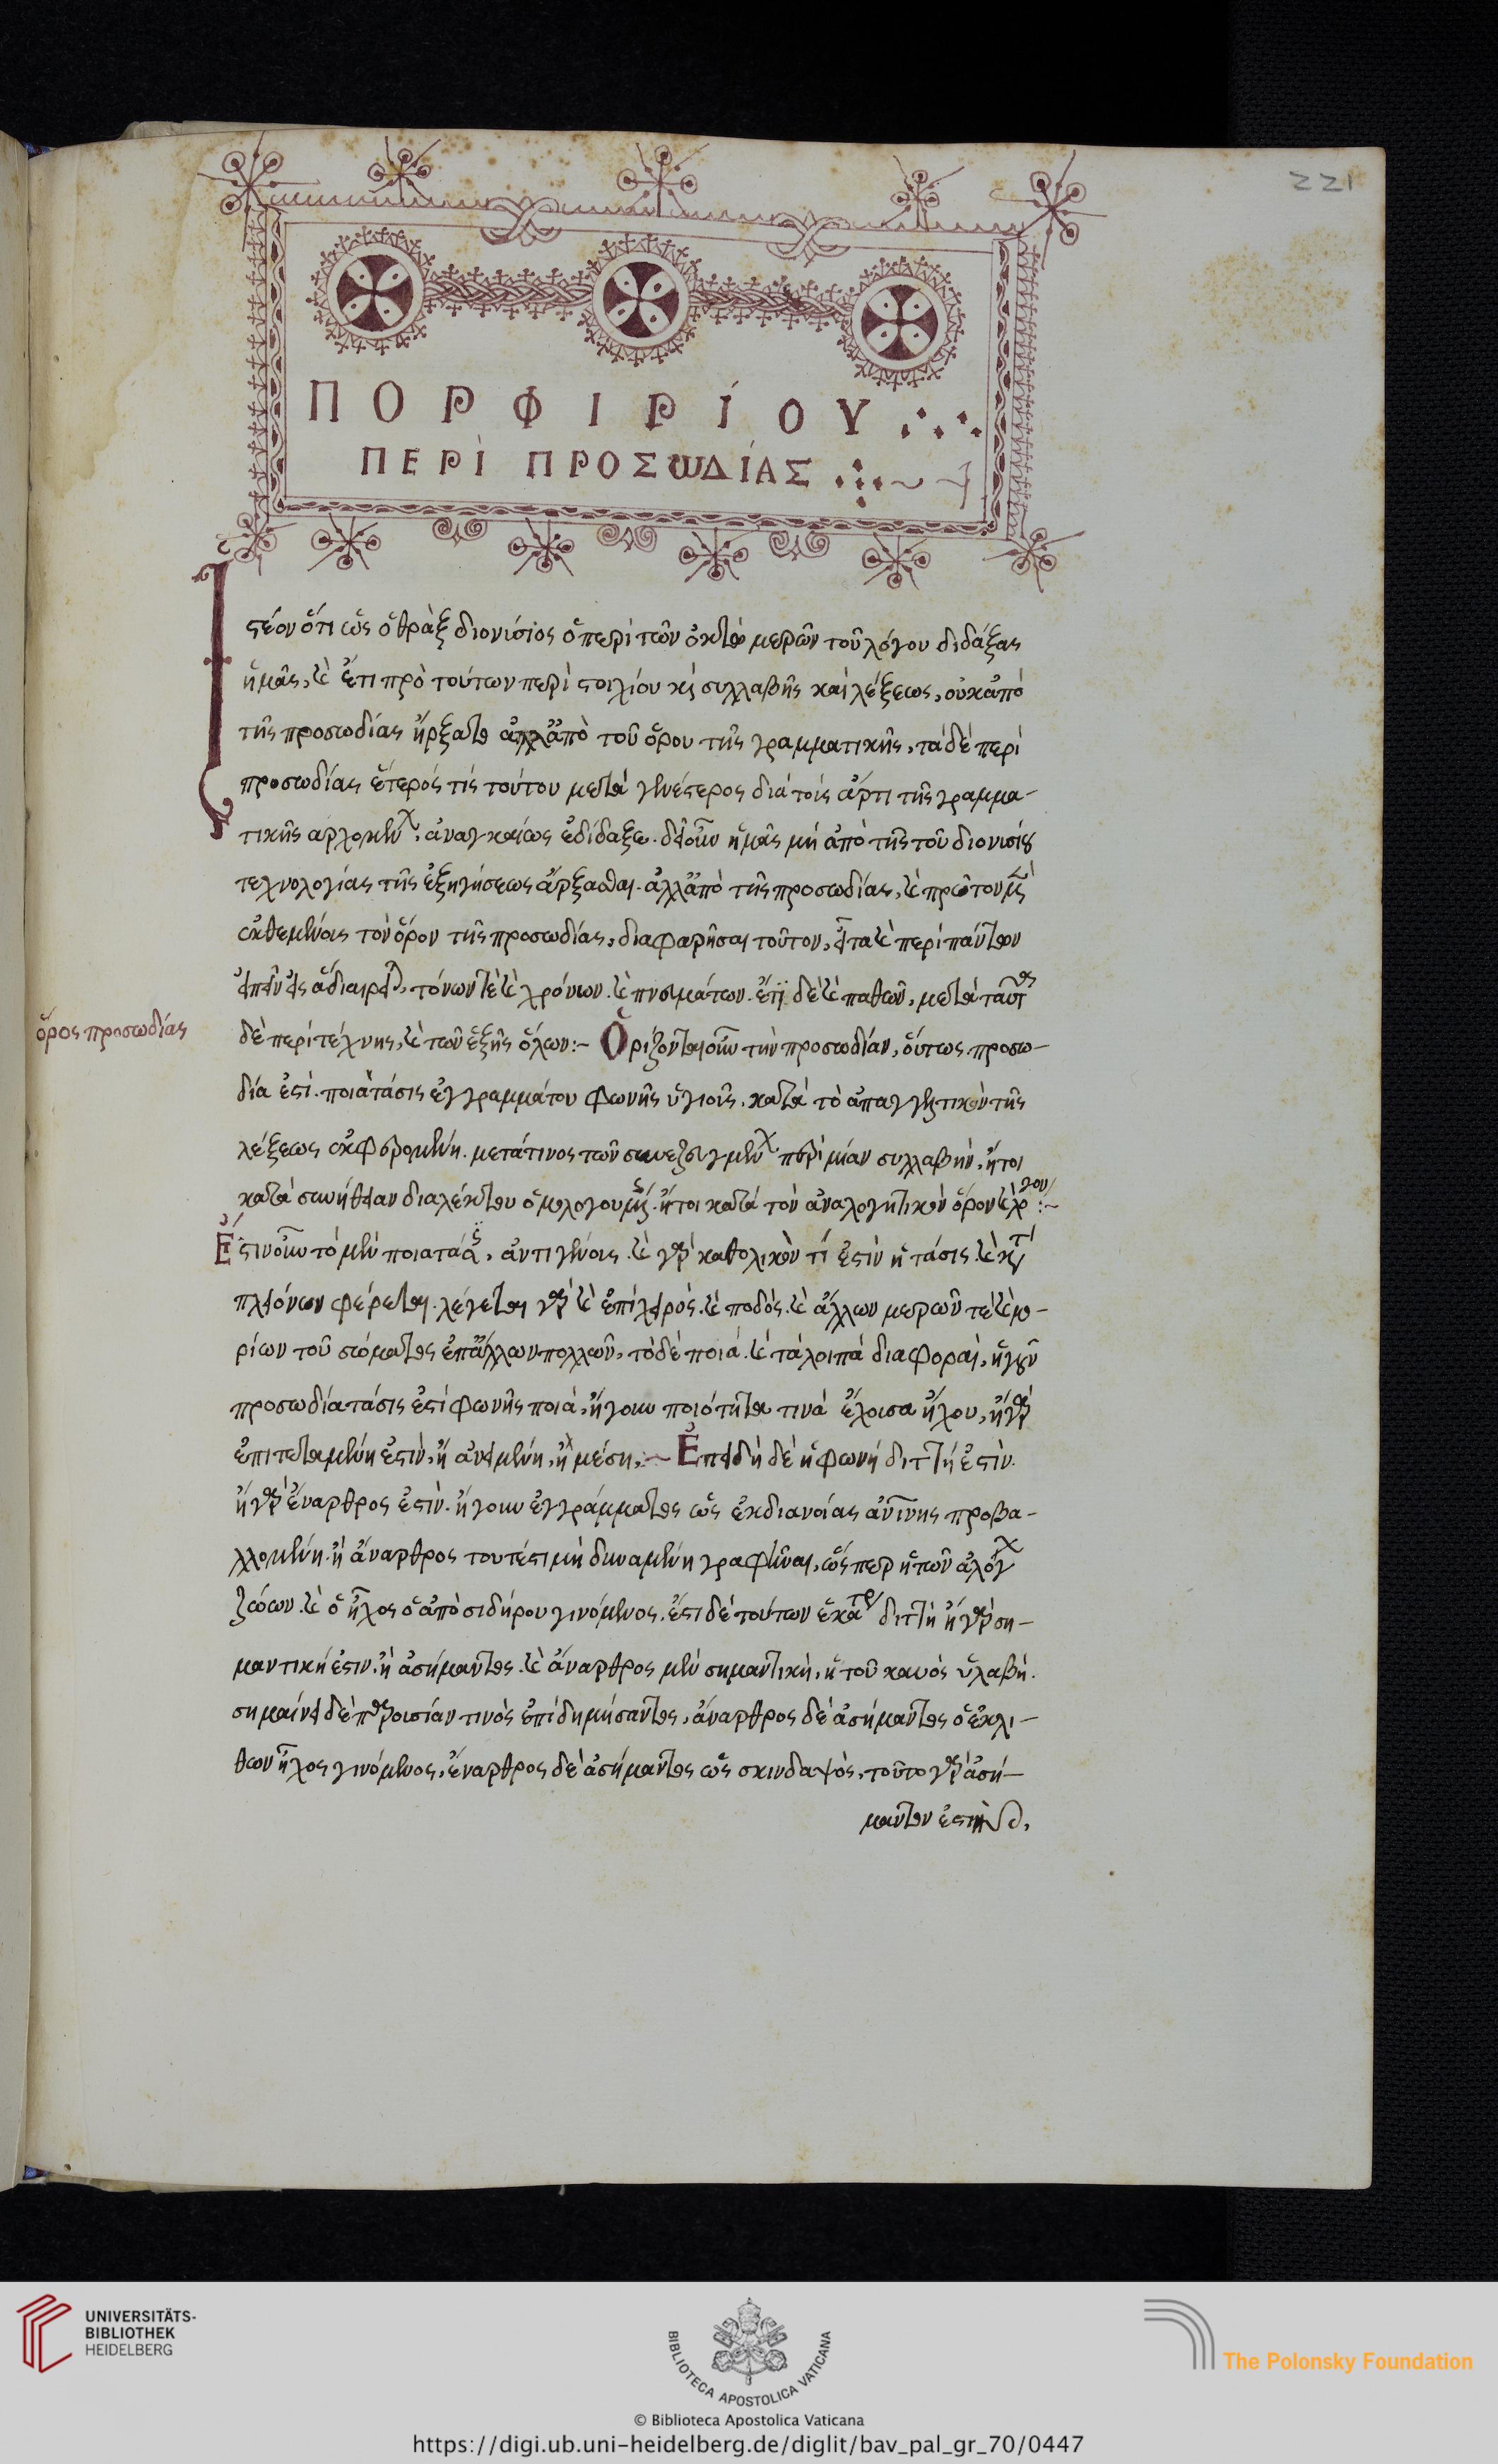 221
ΠΟΡΦΙΡΊΟΥ
ΠΕΡῚ ΠΡΟΣΩΔΊΑΣ
Ἰστέον ὅτι ὡς ὁ θρὰξ διονίσιος ὁ περὶ τῶν ὀκτὼ μερῶν τοῦ λόγου διδάξας
ἡμᾶς, καὶ ἔτι πρὸ τούτων περὶ στοιχίου καὶ συλλαβῆς καὶ λέξεως, οὐκ ἀπὸ
τῆς προσωδίας ἤρξατο ἀλλ ἀπὸ τοῦ ὅρου τῆς γραμματικῆς, τὰ δὲ περὶ
προσωδίας ἕτερός τις τούτου μετὰ γενέστερος διὰ τοὶς ἄρτι τῆς γραμμα-
τικῆς ἀρχομένους, ἀναγκαίως ἐδίδαξε. δεῖ οὖν ἡμᾶς μὴ ἀπὸ τῆς τοῦ διονισίου
τεχνολογίας τῆς ἐξηγήσεως ἄρξασθαι. ἀλλ ἀπὸ τῆς προσωδίας, καὶ πρῶτον μὲν
ἐκθεμένοις τὸν ὅρον τῆς προσωδίας, διαφαρῆσαι τοῦτον, εἶτα καὶ περὶ πάντων
τόνων τὲ καὶ χρόνων. καὶ πνευμάτων. ἔτϊ δὲ καὶ παθῶν, μετὰ ταῦτα
ὅρος προσωδίας
δὲ περὶ τέχνης, καὶ τῶν ἑξῆς ὅλων:- Ὁρίζονται οὖν τὴν προσωδίαν, οὕτως. προσω-
δία ἐστὶ. ποιὰ τάσις ἐγγραμμάτου φωνῆς ὑγιοῦς. κατὰ τὸ ἀπαγγελτικὸν τῆς
λέξεως ἐκφερομένη. μετά τινος τῶν συνεζευγμένων περὶ μίαν συλλαβὴν, ἤτοι
κατὰ συνήθειαν διαλέκτου ὁμολογουμένης. ἤτοι κατὰ τὸν ἀναλογητικὸν ὅρον καὶ λόγον:-
Ἔστιν οὖν τὸ μὲν ποιὰ τάσις, ἀντὶ γένοις. καὶ γὰρ καθολικὸν τί ἐστὶν ἡ τάσις. καὶ κατὰ
πλειόνων φέρεται. λέγεται γὰρ καὶ ἐπὶ χειρὸς. καὶ ποδὸς. καὶ ἄλλων μερῶν τὲ καὶ μο-
ρίων τοῦ σώματος ἐπ ἄλλων πολλῶν, τὸ δὲ ποιά. καὶ τὰ λοιπὰ διαφοραὶ, ἤγουν
προσωδία τάσις ἐστὶ φωνῆς ποιά, ἤγουν ποιότητα τινὰ ἔχοισα ἤχου, ἢ γὰρ
ἐπιτεταμένη ἐστὶν, ἢ ἀνειμένη, ἢ μέση,:~ Ἐπειδὴ δὲ ἡ φωνὴ διττὴ ἐστὶν.
ἢ γὰρ ἔναρθρος ἐστὶν. ἤγουν ἐγγράμματος ὡς ἐκ διανοίας προβα-
λλομένη. ἢ ἄναρθρος τουτέστι μὴ δυναμένη γραφῆναι, ὥσπερ ἡ τῶν ἀλόγων
ζώων. καὶ ὁ ἦχος ὁ ἀπὸ σιδήρου γινόμενος. ἔστι δὲ τούτων ἑκατέρα διττὴ ἢ γὰρ ση-
μαντικὴ ἐστιν. ἢ ἀσήμαντος. καὶ ἄναρθρος μὲν σημαντικὴ, ἡ τοῦ κυνὸς ὑλαβὴ.
σημαίνει δὲ παροισίαν τινὸς ἐπιδημήσαντος, ἄναρθρος δὲ ἀσήμαντος ὁ ἐκ λι-
θων ἦχος γινόμενος, ἔναρθρος δὲ ἀσήμαντος ὡς σκινδαψὸς, τοῦτο γὰρ ἀσή-
μαντον ἐστὶν
UNIVERSITÄTS-
BIBLIOTHEK
HEIDELBERG
BIBLIOTECA APOSTOLICA VATICANA
The Polonsky Foundation
© Biblioteca Apostolica Vaticana
https://digi.ub.uni-heidelberg.de/diglit/bav_pal_gr_70/0447